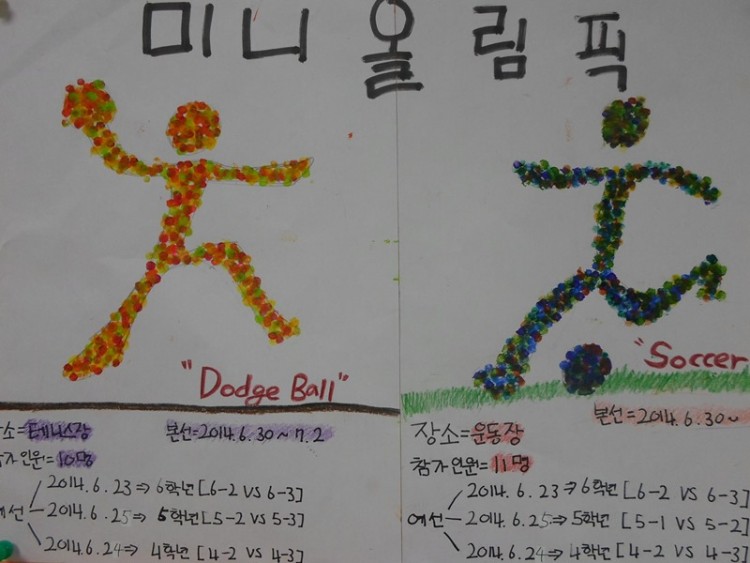 미니올림픽
"Dodge Ball"
장소=테니스장
본선=2014.6.30~7.2
참가인원=10명
예선
2014.6.23⇒6학년[6-2 VS 6-3]
2014.6.25⇒5학년[5-2 VS 5-3]
2014.6.24⇒4학년[4-2 VS 4-3]
"Soccer
본선=2014.6.30~
장소=운동장
참가인원=11명
예선
2014.6.23⇒6학년[6-2 VS 6-3]
2014.6.25⇒5학년[5-1 VS 5-2]
2014.6.24⇒4학년[4-2 VS 4-3]